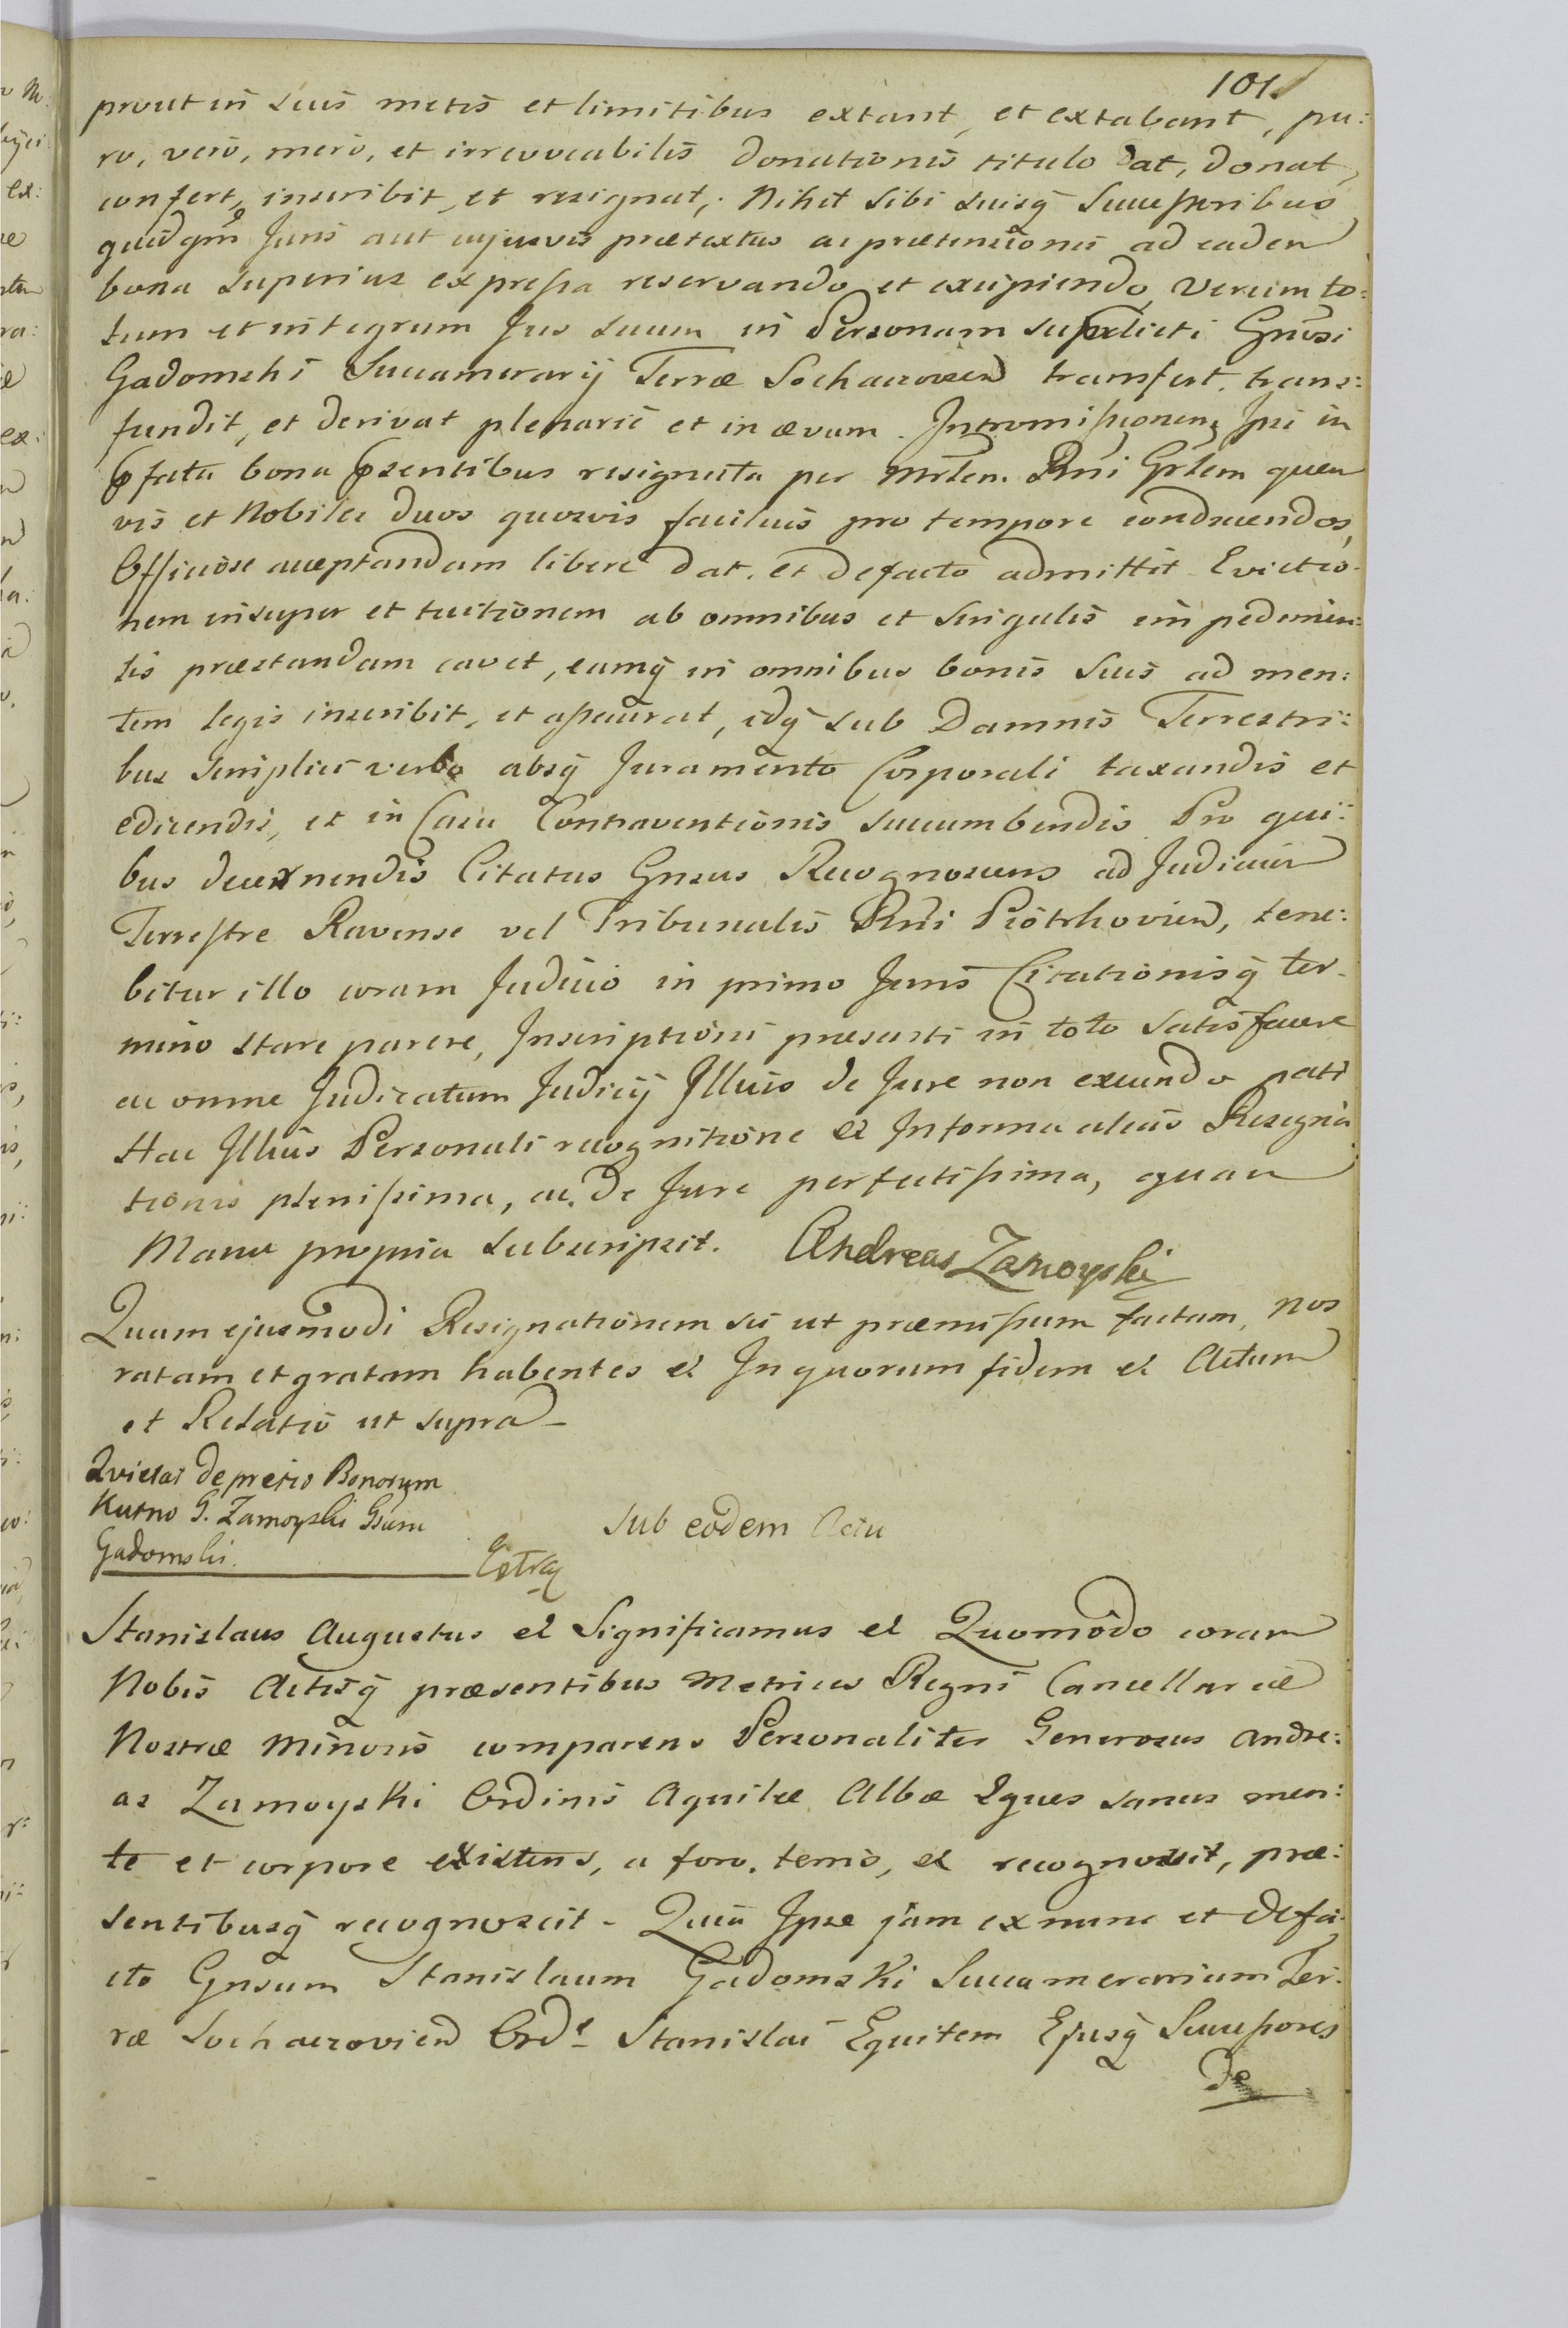 101.
prout in suis metis et limitibus extant, et extabant, pu:
ro, vero, mero, et irrevocabilis Donationis titulo Dat, Donat,
confert, inscribit, et resignat, Nihil sibi suisq Successoribus
quidqm Juris aut cujusvis prætextus ac prætensionis ad eadem
bona superius expressa reservando et excipiendo, Verum to:
tum et integrum Jus suum in Personam supradicti Gnosi
Gadomski Succamerarij Terræ Sochaczovien transfert, trans:
fundit, et derivat plenarie et in ævum. Intromissionem Ipsi in
pfata bona psentibus resignata per Mrlem. Rni Grlem quem
vis et Nobiles duos quosvis faciliis pro tempore conducendos,
Officiose acceptandam libere dat, et defacto admittit Evictio
nem insuper et tuitionem ab omnibus et singulis impedimen:
tis præstandam cavet, eamq in omnibus bonis suis ad men:
tem legis inscribit, et assecurat, idq sub Damnis Terrestri:
bus simplici verbo absq Juramento Corporali taxandis et
edicendis, et in Casu Contraventionis succumbendis Pro qui:
bus decernendis Citatus Gnsus Recognoscens ad Judicium
Terrestre Ravense vel Tribunalis Rni Piotrkovien, tene:
bitur illo coram Judicio in primo Juris Citationisq ter-
mino stare parere, Inscriptioni præsenti in toto satisfacere
ac omne Judicatum Judicij Illius de Jure non exeundo pati
Hac Illius Personali recognitione et Informa alias Resigna
tionis plenissima, ac de Jure perfectissima, quam
Manu propria subscripsit. Andreas Zamoyski
Quam ejusmodi Resignationem sic ut præmissum factam, Nos
ratam et gratam habentes et In quorum fidem et Actum
et Relatio ut supra
Quietat de pretio Bonorum
Kutno G. Zamoyski Gsum
Gadomski. Extra
Sub eodem Actu
Stanislaus Augustus et Significamus et Quomodo coram
Nobis Actisq præsentibus Metrices Regni Cancellariæ
Nostræ Minoris comparens Personaliter Generosus Andre:
as Zamoyski Ordinis Aquilæ Albæ Eques sanus men:
te et corpore existens, a foro. temis, et recognovit, præ:
sentibusq recognoscit - Quia Ipse jam exnunc et defa:
cto Gnsum Stanislaum Gadomski Succamerarium Ter:
ræ Sochaczovien Ord Stanislai Equitem Ejusq Successores
De